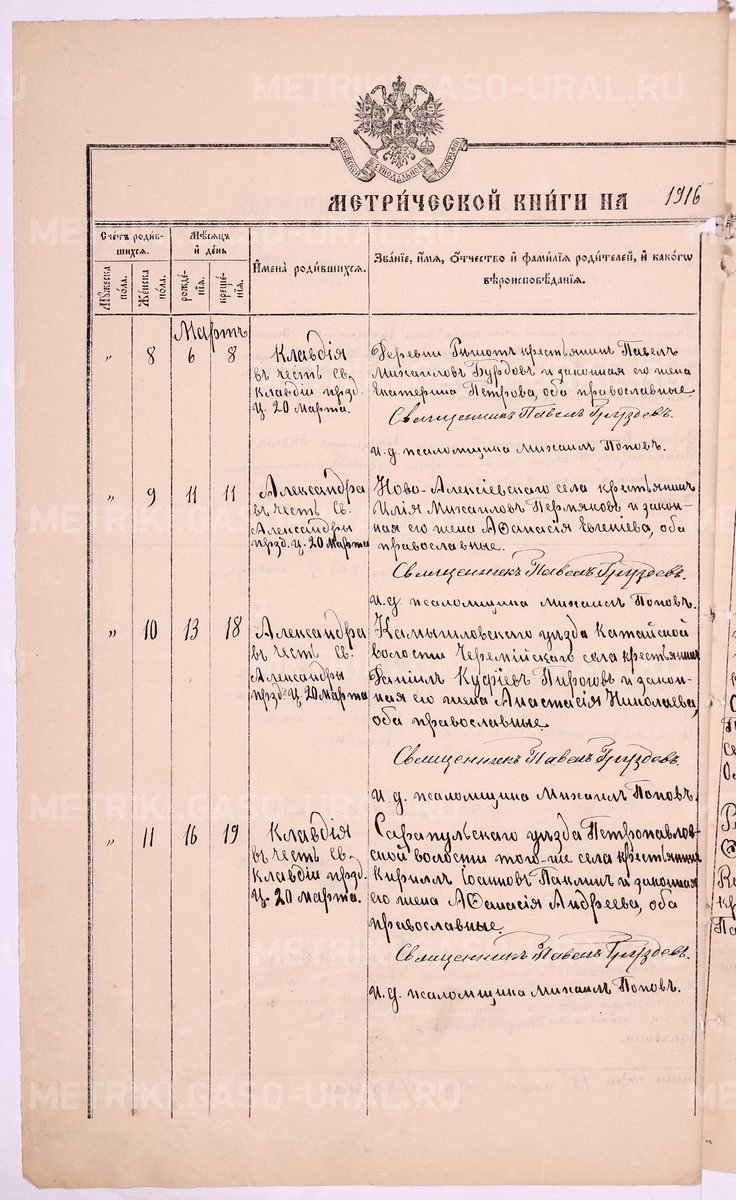 METRIKI.GASO-URAL.RU
МОСКОВСКОЙ СѴНОДАЛЬНОЙ ТИПОГРАФІИ
МЕТРИ́ЧЕСКОЙ КНИ́ГИ НА 1916
Сче́тъ роди́вшихся.
Мꙋ́жеска по́ла.
Же́нска по́ла.
Мѣ́сяцъ и҆ де́нь
рожде́нїѧ.
креще́нїѧ.
И҆мена̀ роди́вшихсѧ.
Зва́нїе, и҆́мѧ, о҆́тчество и҆ фами́лїѧ роди́телей, и҆ како́гѡ
вѣроисповѣ́данїѧ.
Мартъ
„ 8 6 8
Клавдія
въ честь св.
Клавдіи прзд.
ц. 20 марта.
Деревни крестьянинъ Павелъ
Михаиловъ Бурдовъ и законная его жена
Екатерина Петрова, оба православные.
Священникъ Павелъ Груздевъ.
И. д. псаломщика Михаилъ Поповъ.
„ 9 11 11
Александра
въ честь св.
Александры
прзд. ц. 20 марта
Ново-Алексіевскаго села крестьянинъ
Илія Михаиловъ Пермяковъ и закон-
ная его жена Аѳанасія Евгеніева, оба
православные.
Священникъ Павелъ Груздевъ.
И. д. псаломщика Михаилъ Поповъ.
„ 10 13 18
Александра
въ честь св.
Александры
прзд. ц. 20 марта
Камышловскаго уѣзда Катайской
волости села крестьянинъ
Даніилъ Пироговъ и закон-
ная его жена Анастасія Николаева,
оба православные.
Священникъ Павелъ Груздевъ.
И. д. псаломщика Михаилъ Поповъ.
„ 11 16 19
Клавдія
въ честь св.
Клавдіи прзд.
ц. 20 марта.
Сарапульскаго уѣзда Петропавлов-
ской волости того-же села крестьянинъ
Кириллъ Іоанновъ Паклинъ и законная
его жена Аѳанасія Андреева, оба
православные.
Священникъ Павелъ Груздевъ.
И. д. псаломщика Михаилъ Поповъ.